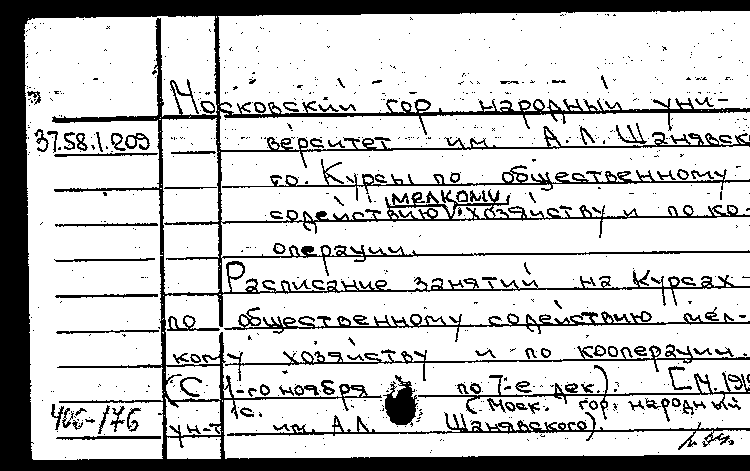 Московский гор. народный уни-
37.58.1.209 верситет им. А.Л. Шанявско
го. Курсы по общественному
мелкому
содействию V хозяйству и по ко-
операции.
Расписание занятий на Курсах
по общественному содействию мел-
кому хозяйству и по кооперации.
(С 1-го ноября по 7-е дек.). [М. 191
1с. (Моск. гор. народный
406-176 ун-т им. А.Л. Шанявского)